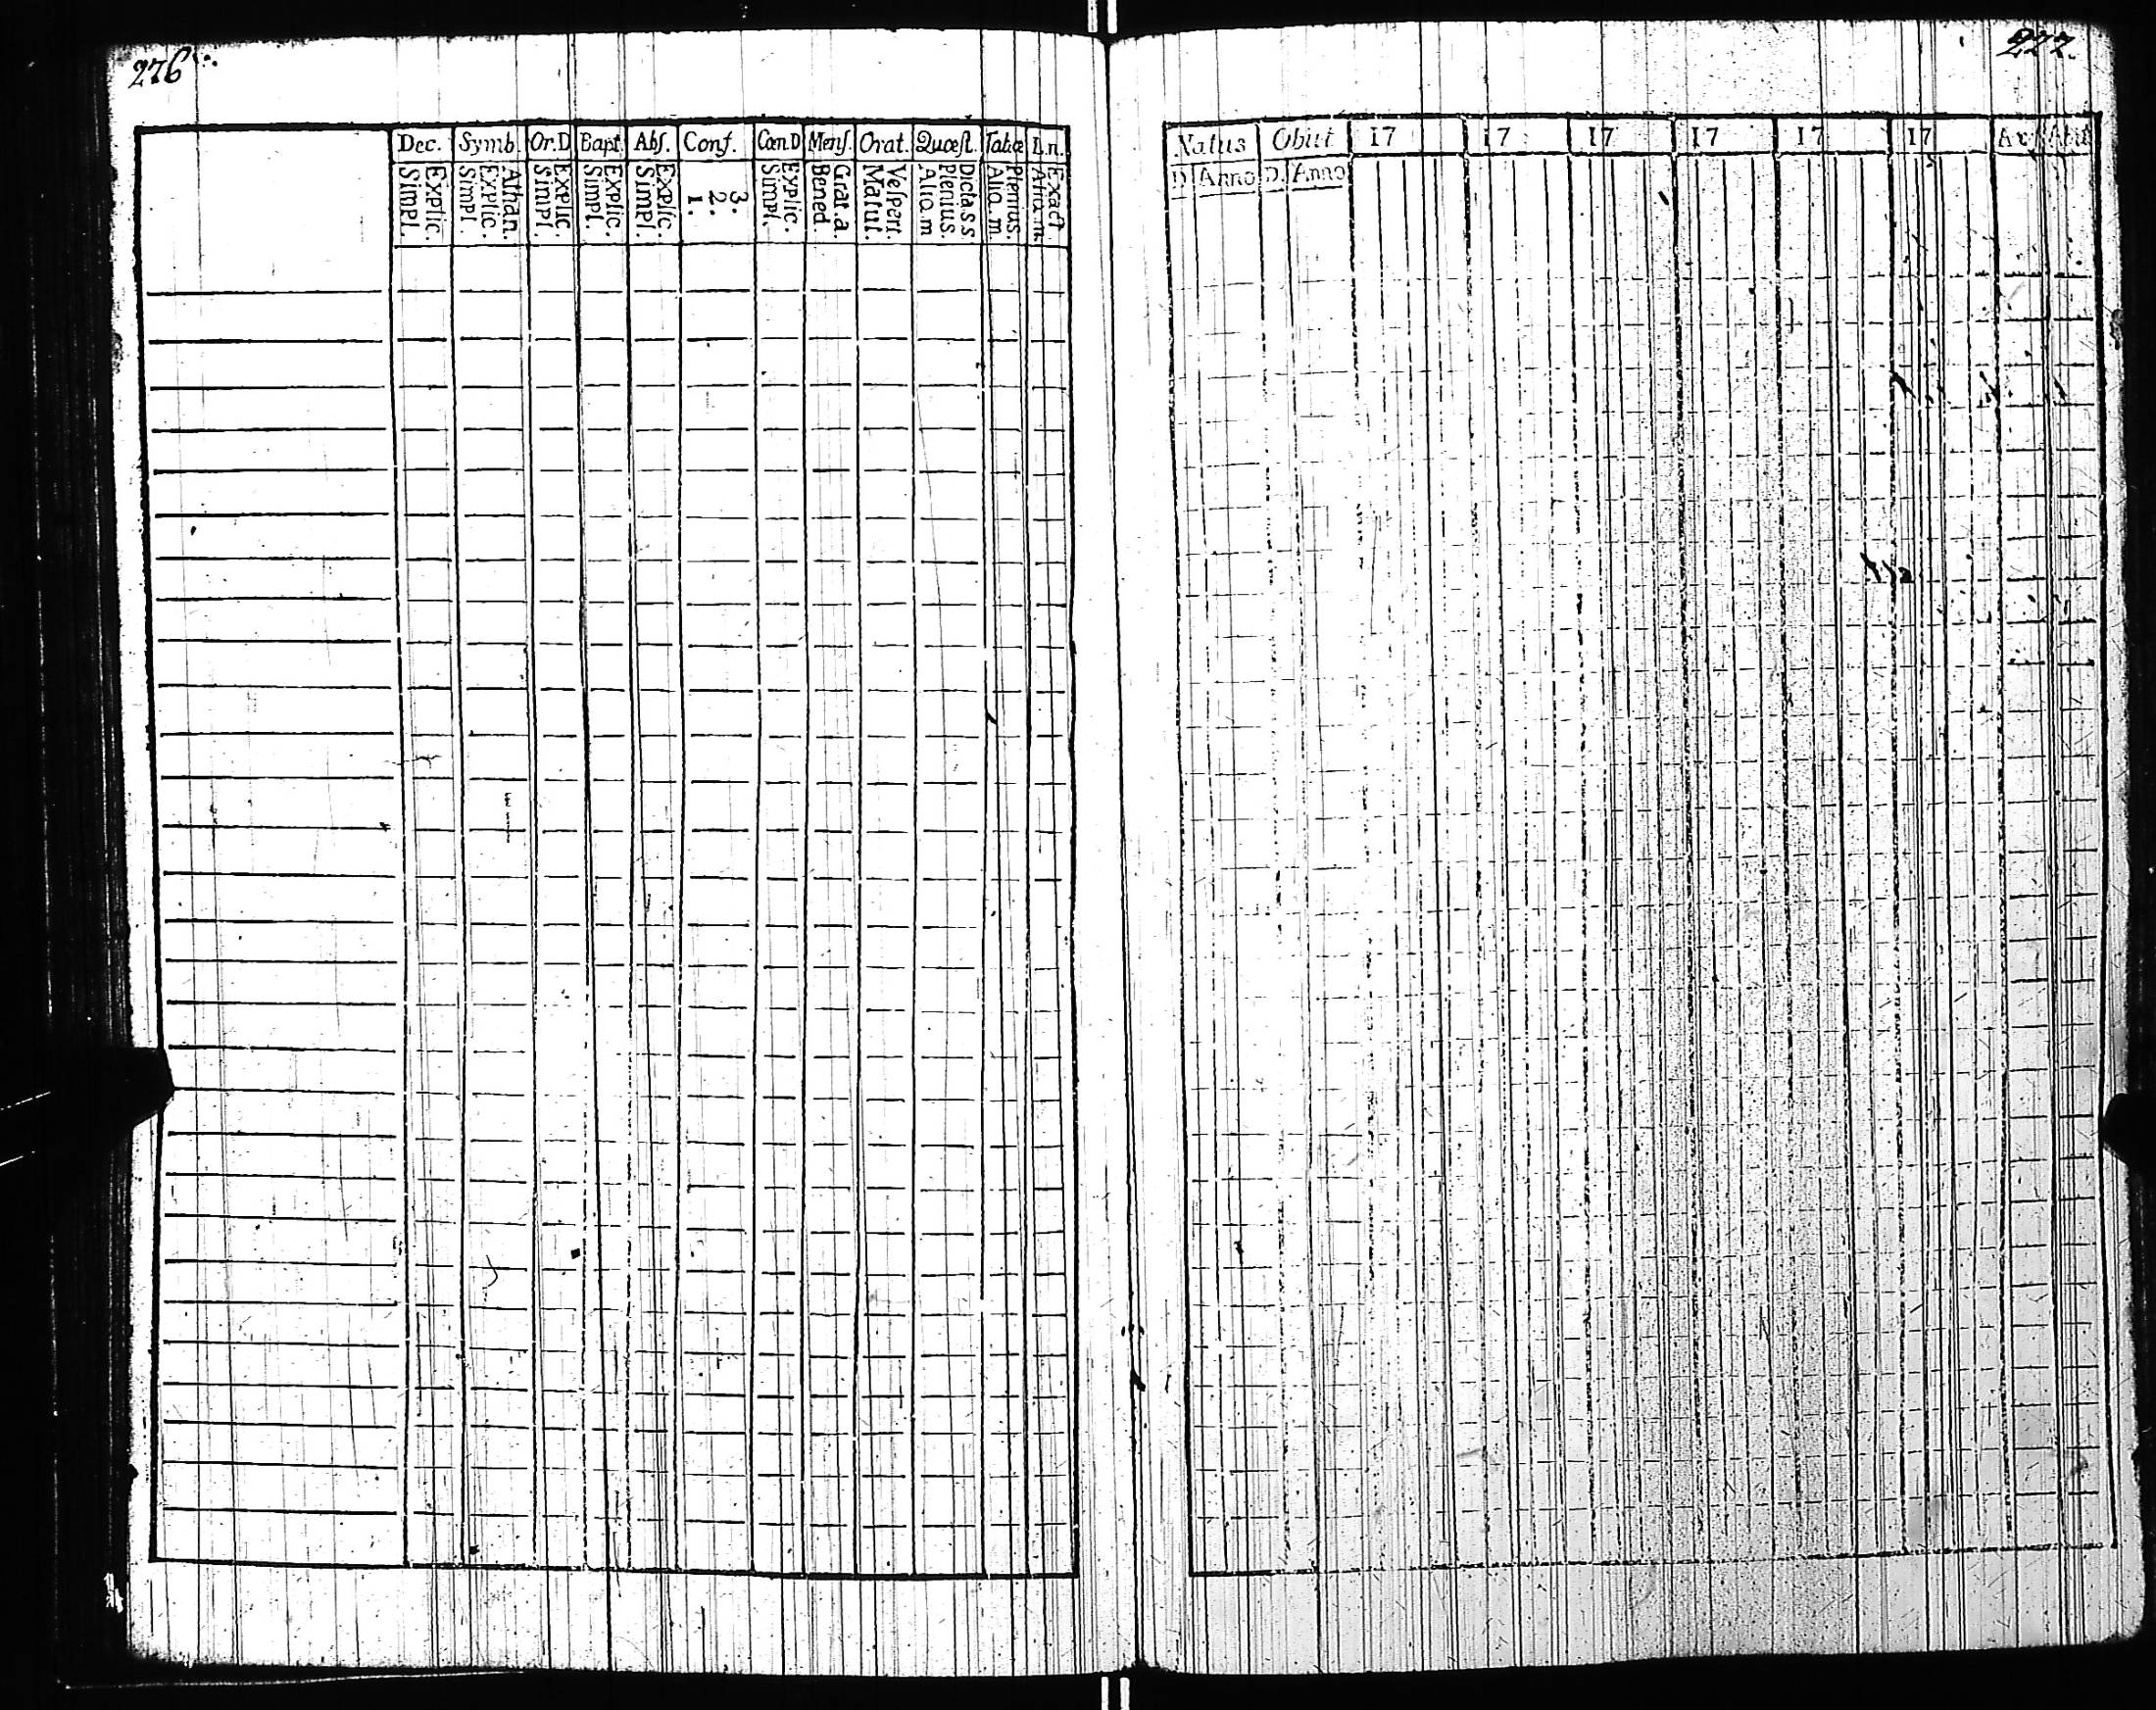 276
Dec. Symb. Or.D Bapt. Abſ. Conf. Cœn.D Menſ. Orat. Quœſt. Tabœ L.n.
Explic. Simpl.
Athan. Explic. Simpl.
Explic. Simpl.
Explic. Simpl.
Explic. Simpl.
3. 2. 1.
Explic. Simpl.
Grat.a. Bened.
Veſpert. Matut.
Dicta.s.s. Plenius. Aliq.m
Plenius. Aliq.m.
Exact. Aliq.m.
277.
Natus Obiit 17 17 17 17 17 17
D. Anno D. Anno